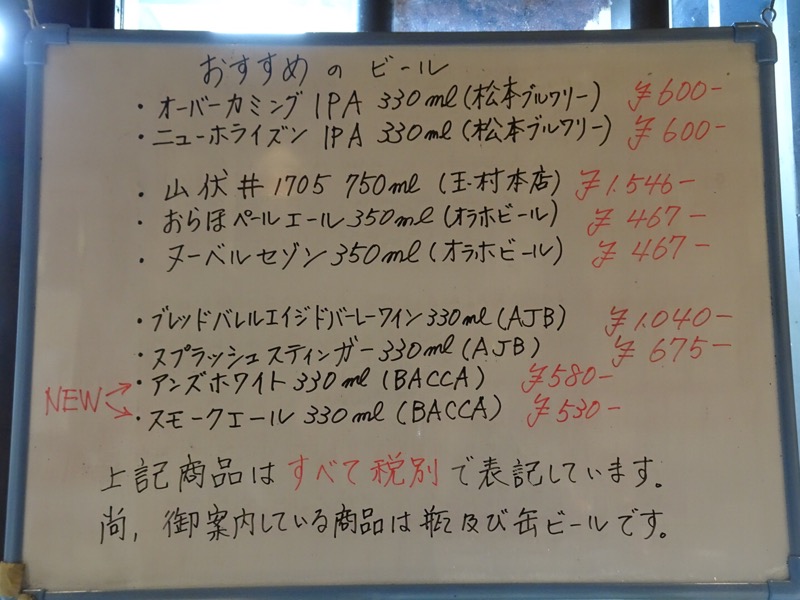 おすすめの ビール
・オーバーカミング IPA 330ml(松本ブルワリー) ¥600-
・ニューホライズン IPA 330ml(松本ブルワリー) ¥600-
・山伏 井 1705 750ml (玉村本店) ¥1.546-
・おらほペールエール350ml(オラホビール) ¥467-
・ヌーベルセゾン350ml(オラホビール) ¥467-
・ブレッドバレルエイジドバーレーワイン330ml(AJB) ¥1.040-
・スプラッシュスティンガー330ml(AJB) ¥675-
NEW
・アンズホワイト330ml(BACCA) ¥580-
・スモークエール330ml(BACCA) ¥530-
上記商品はすべて税別で表記しています。
尚,御案内している商品は瓶及び缶ビールです。